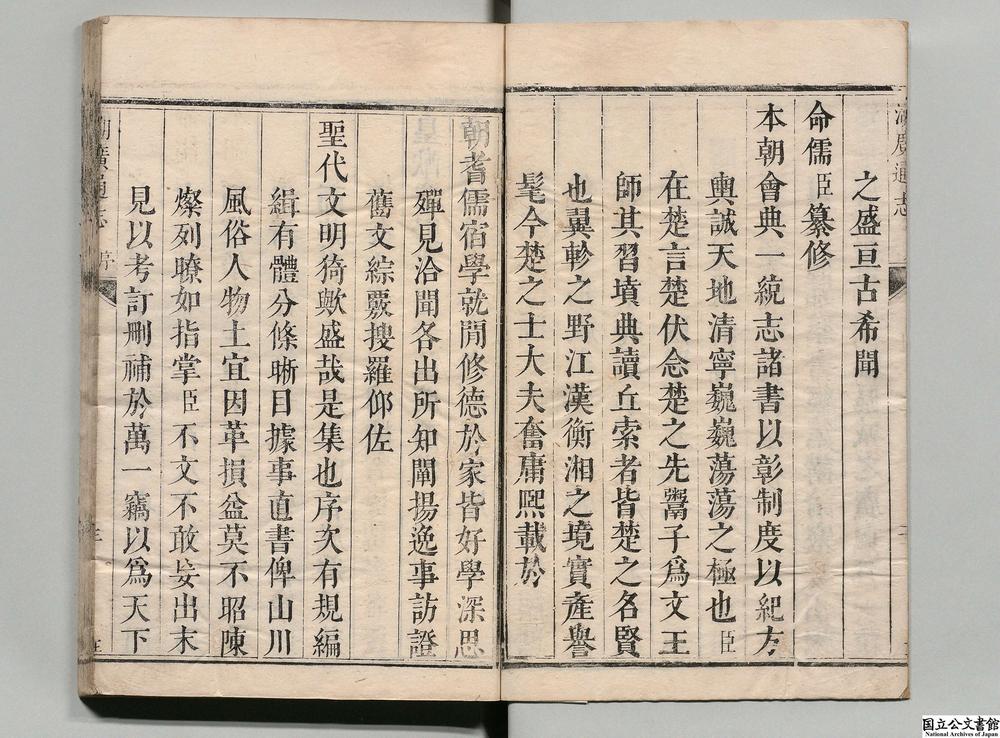 之盛亘古希聞
命儒臣纂修
本朝會典一統志諸書以彰制度以紀方
輿誠天地清寧巍巍蕩蕩之極也臣
在楚言楚伏念楚之先鬻子爲文王
師其習墳典讀丘索者皆楚之名賢
也翼軫之野江漢衡湘之境實產譽
髦今楚之士大夫奮庸熙載於
朝耆儒宿學就閒修德於家皆好學深思
殫見洽聞各出所知闡揚逸事訪證
舊文綜覈搜羅仰佐
聖代文明猗歟盛哉是集也序次有規編
緝有體分條晰目據事直書俾山川
風俗人物土宜因革損益莫不昭陳
燦列瞭如指掌臣不文不敢妄出末
見以考訂刪補於萬一竊以爲天下
湖廣通志 序
国立公文書館
National Archives of Japan